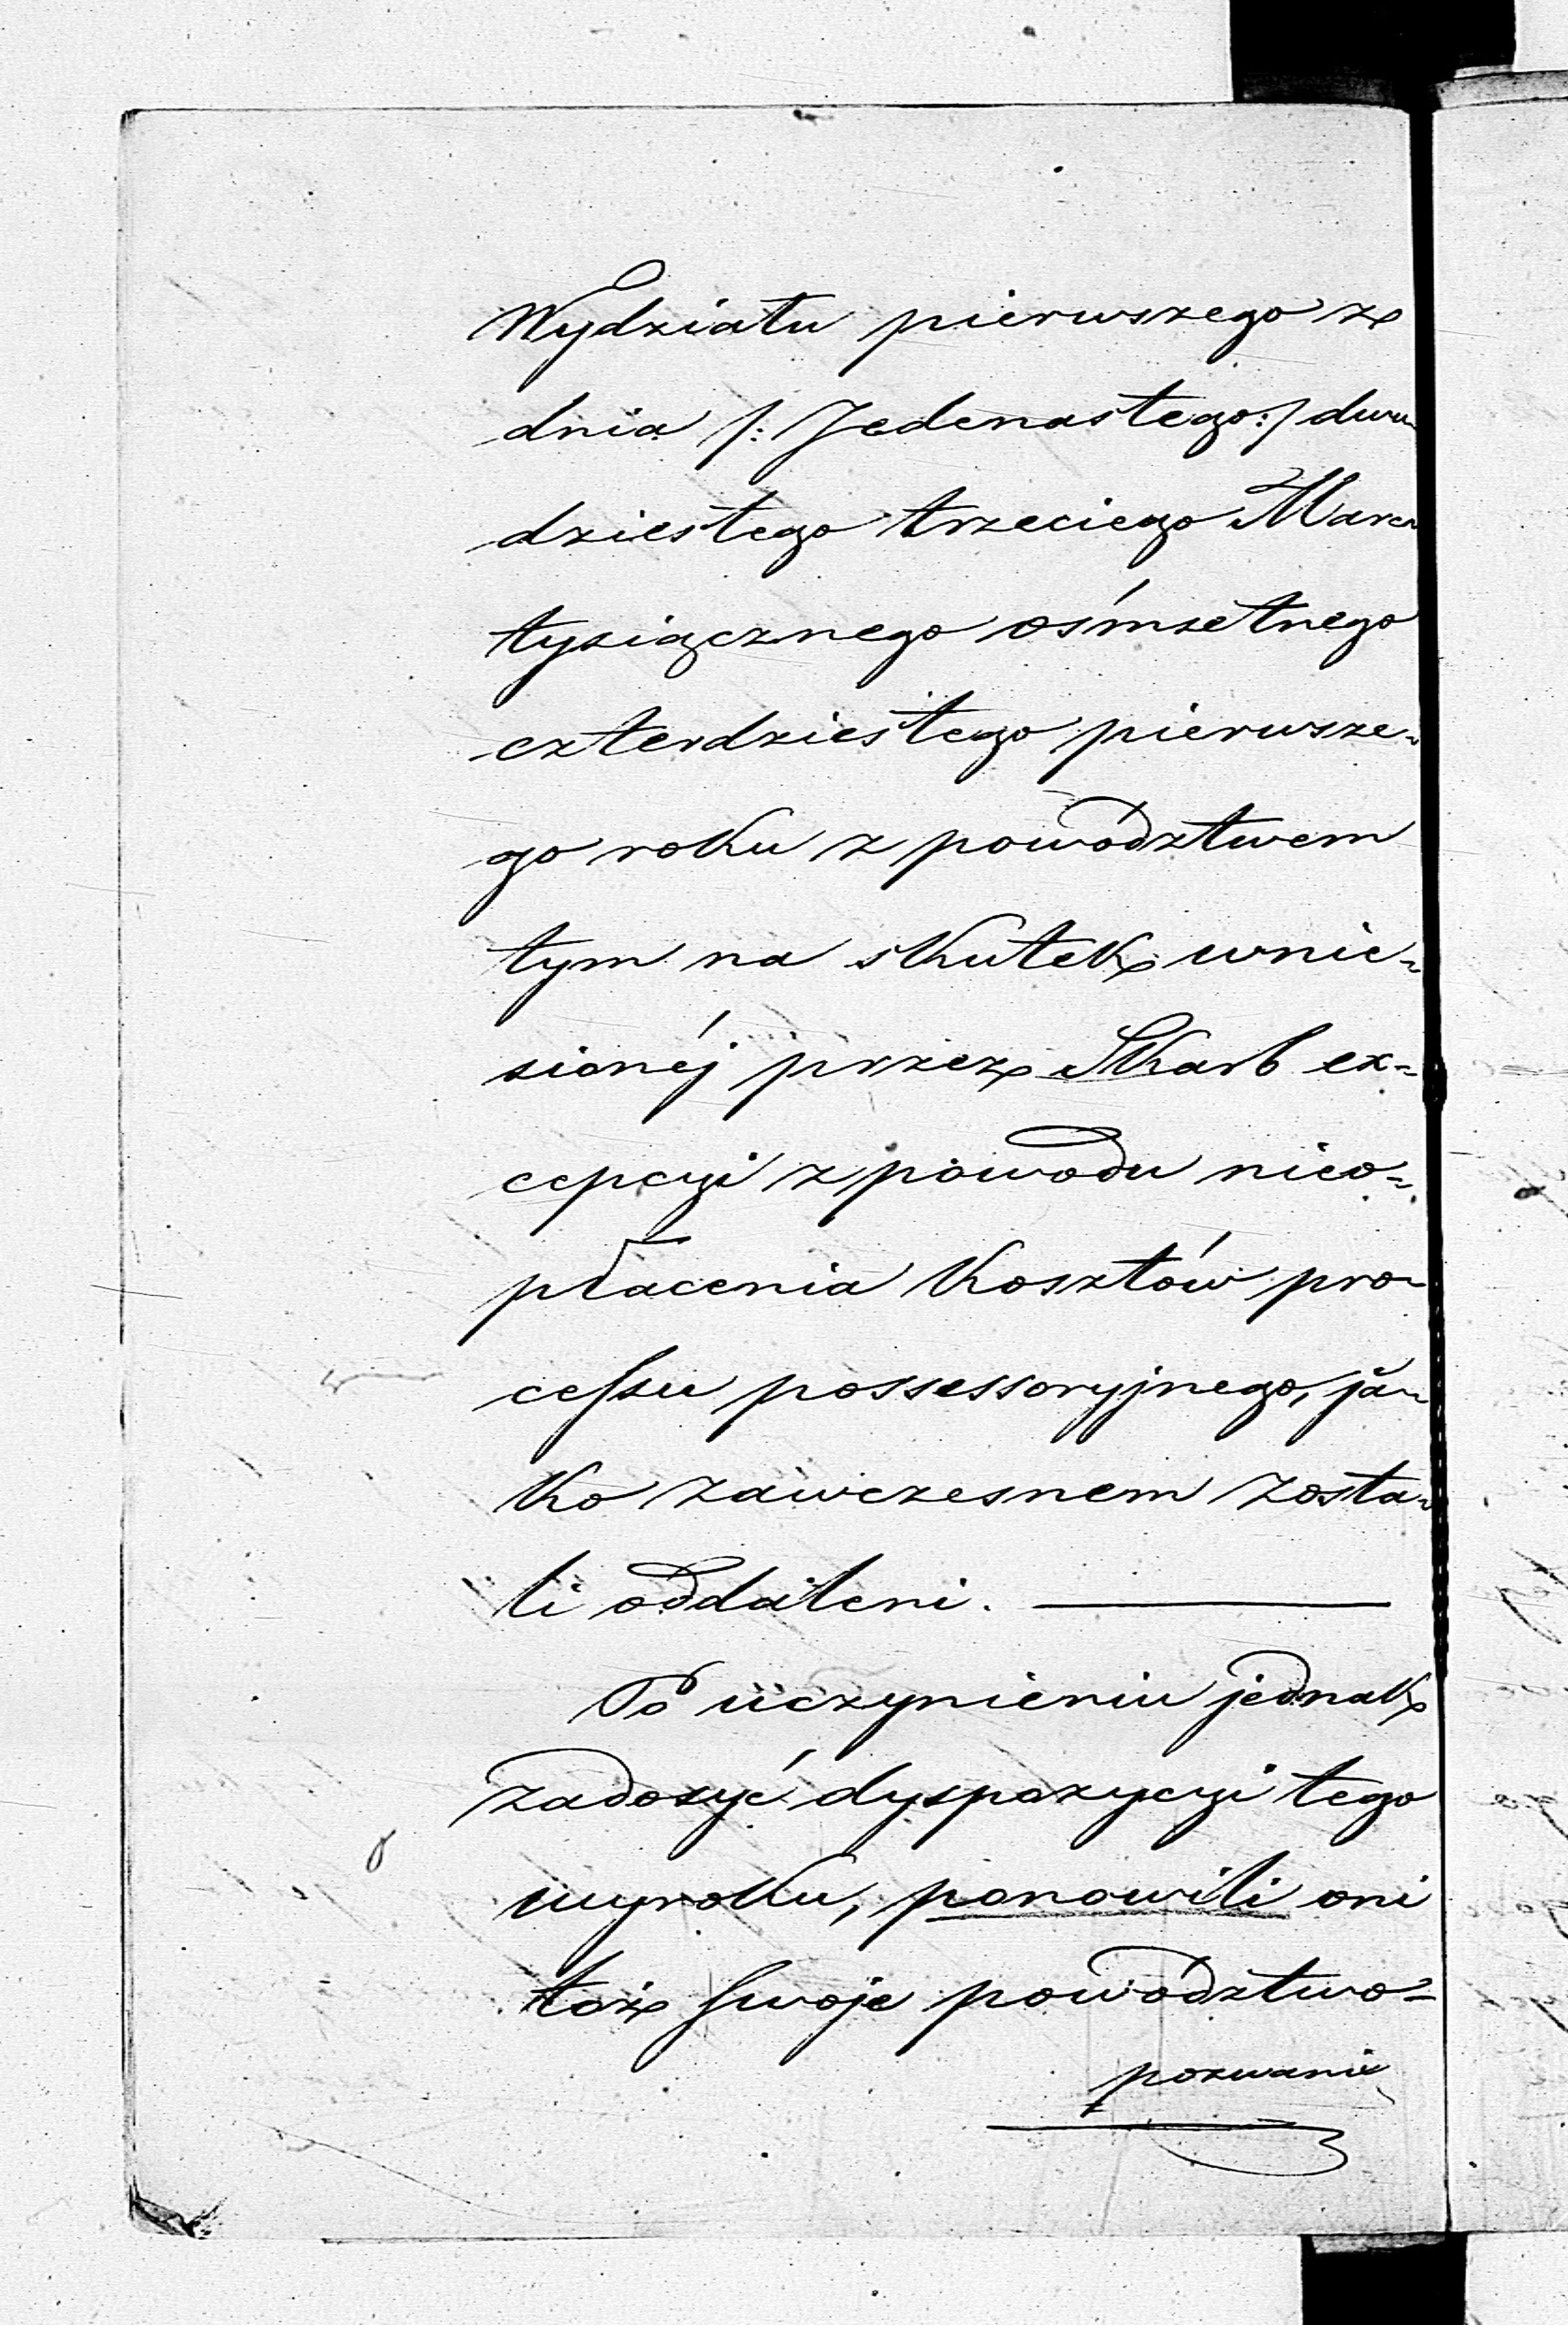 Wydziału pierwszego z
dnia /: Jedenastego :/ dwu
dziestego trzeciego Marca
tysiącznego ośmsetnego
czterdziestego pierwsze-
go roku z powództwem
tym na skutek wnie-
sionéj przez Skarb ex-
cepcyi z powodu nieo-
płacenia Kosztów pro-
cessu possessoryjnego, ja-
ko zawczesnem zosta-
li oddaleni. ———
Po uczynieniu jednak
zadosyć dyspozycyi tego
wyroku, ponowili oni
toż swoje powództwo-
pozwanie